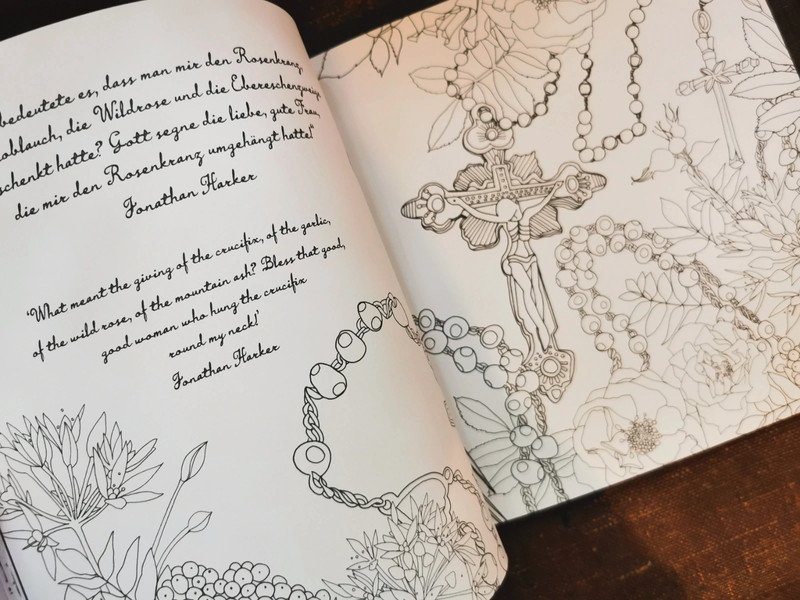 bedeutete es, dass man mir den Rosenkranz,
die Wildrose und die Ebereschenzweige
hatte? Gott segne die liebe, gute Frau,
die mir den Rosenkranz umgehängt hatte!"
Jonathan Harker
'What meant the giving of the crucifix, of the garlic,
of the wild rose, of the mountain ash? Bless that good,
good woman who hung the crucifix
round my neck!'
Jonathan Harker